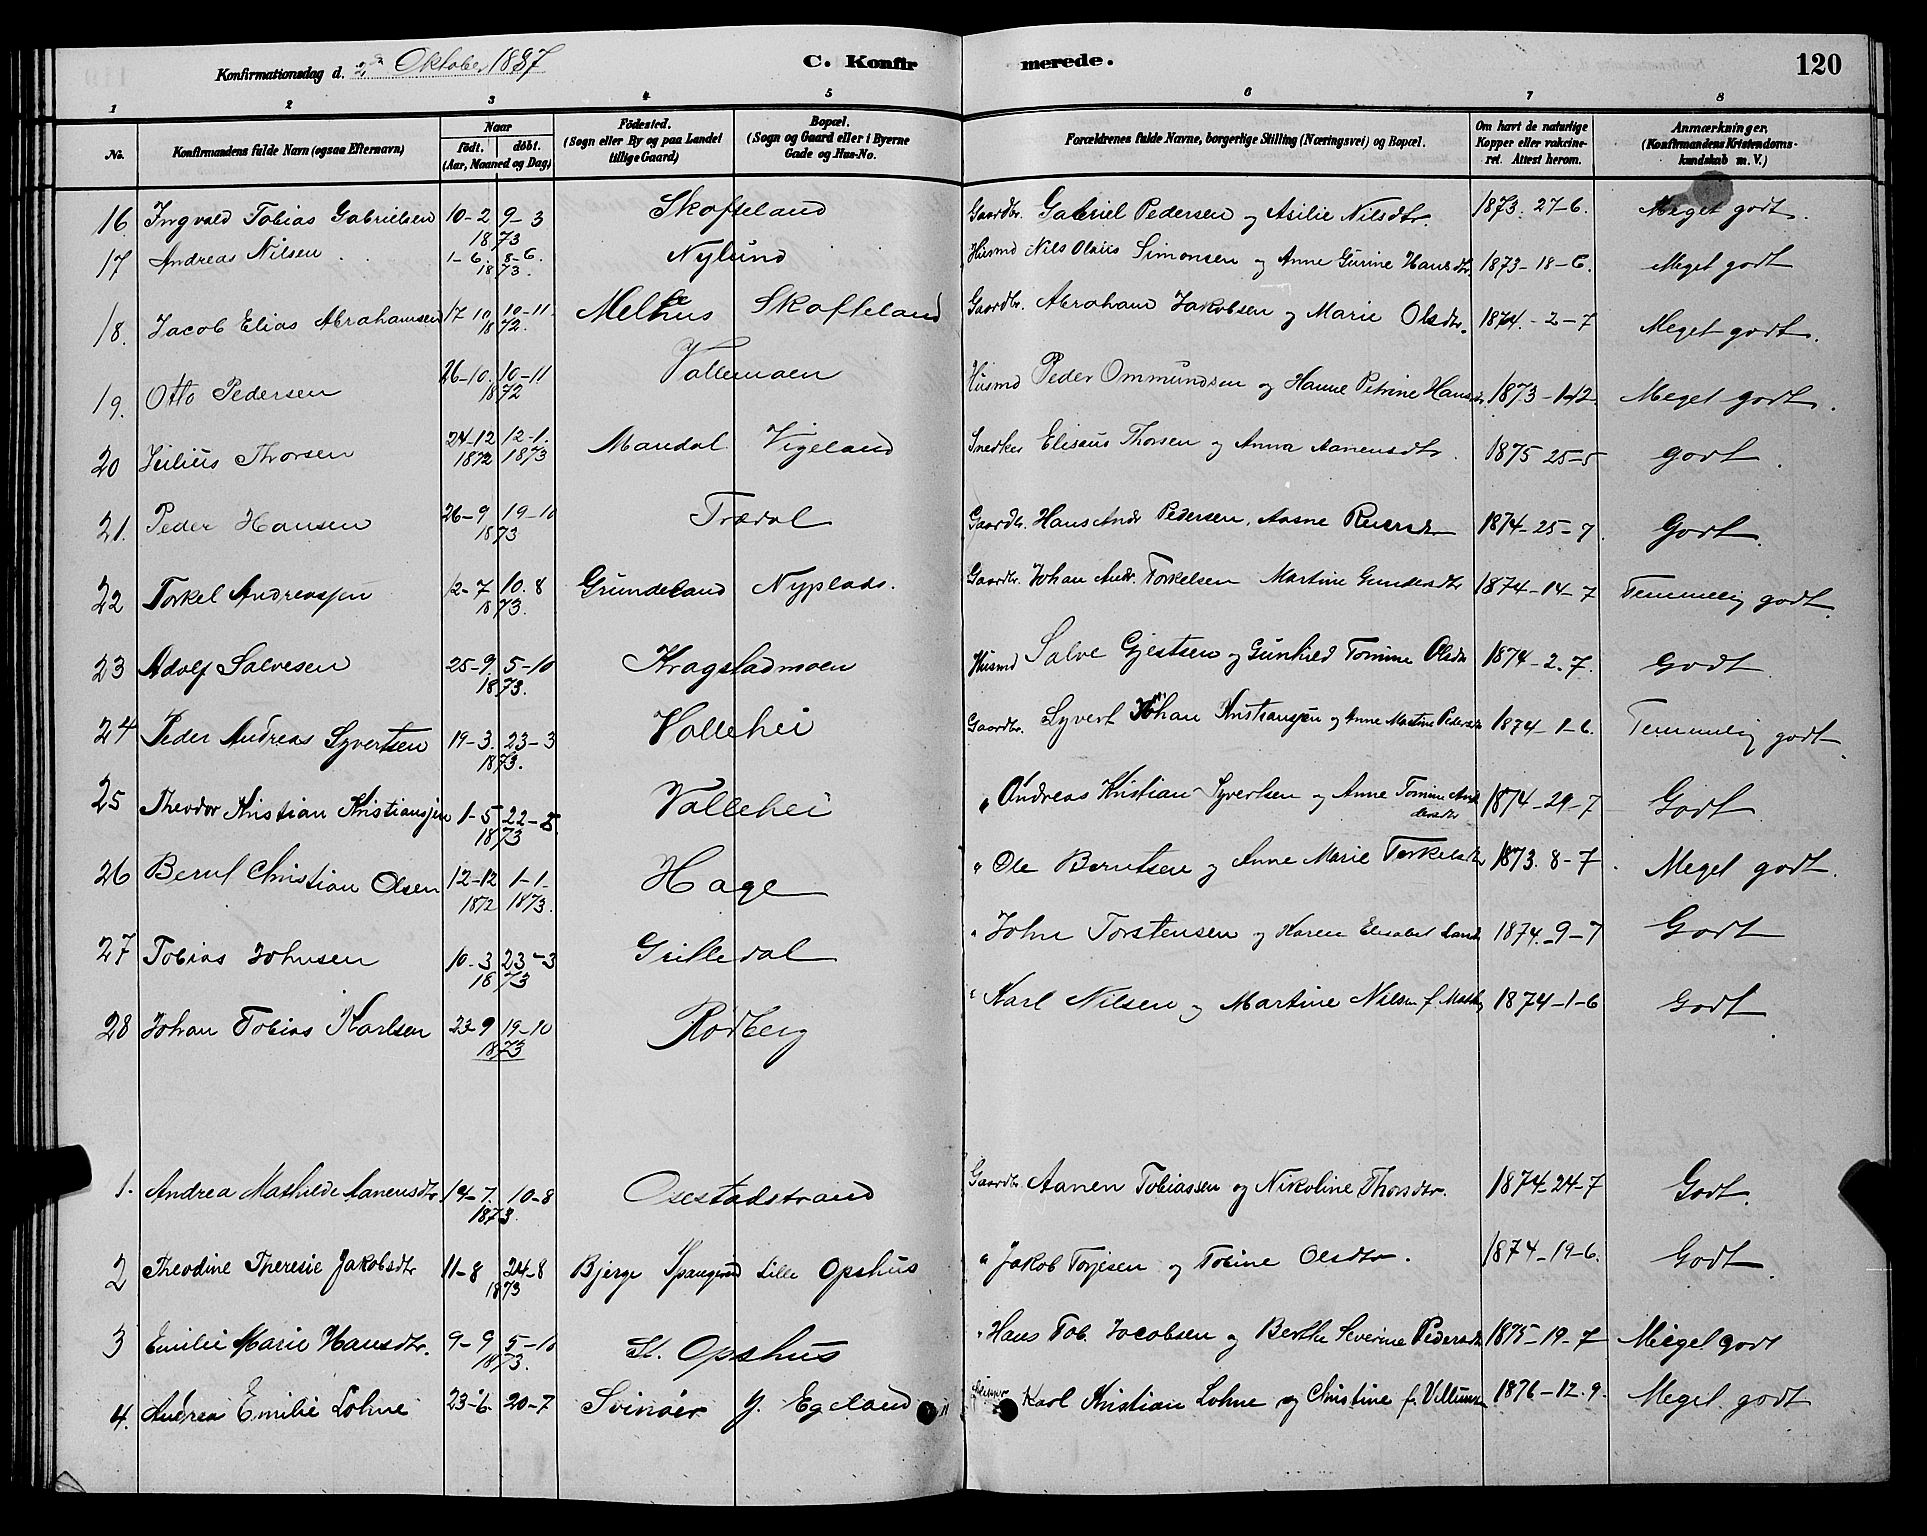 Konfirmationsdag d. 2den Oktober 1887 C. Konfirmerede. 120
1 2 3 4 5 6 7 8
No. Konfirmandens fulde Navn (ogsaa Efternavn) Naar födt. döbt. (Aar, Maaned og Dag) Födested. (Sogn eller By og paa Landet tillige Gaard) Bopæl. (Sogn og Gaard eller i Byerne Gade og Hus-No. Forældrenes fulde Navne, borgerlige Stilling (Næringsvei) og Bopæl. Om havt de naturlige Kopper eller vakcineret. Attest herom. Anmærkninger, (Konfirmandens Kristendomskundskab m. V.)
16 Ingvald Tobias Gabrielsen 10-2 9-3 1873 Skofteland Gaardbr. Gabriel Pedersen og Asilie Nilsdtr. 1873. 27-6. Meget godt.
17 Andreas Nilsen 1-6. 8-6. 1873. Nylund Husmd Nils Olaus Simonsen og Anne Gurine Hansdtr 1873-18-6. Meget godt
18. Jacob Elias Abrahamsen 17 10 10-11. 1872. Melhus Skofteland Gaardbr. Abraham Jakobsen og Marie Olsdtr. 1874.-2-7 Meget godt.
19. Otto Pedersen 26-10. 10-11 1872 Vallemoen Husmd Peder Ommundsen og Hanne Petrine Hansdtr 1873-1-12. Meget godt.
20 Julius Thorsen 24-12 1872 12-1. 1873 Mandal Vigeland Snedker Elisæus Thorsen og Anna Aanensdtr. 1875 25-5 godt.
21. Peder Hansen 26-9 19-10 1873 Trædal Gaardbr. Hans Andr Pedersen, Aasne Reiersdtr 1874-25-7. Godt.
22 Torkel Andreassen 12-7 10.8 1873. Grundeland Nyplads. Gaardbr. Johan Andr. Torkelsen Martine Gundersdtr 1874-14-7 Temmelig godt.
23 Adolf Salvesen 25-9. 5-10 1873. Kragstadmoen Husmd Salve Gjertsen og Gunhild Tomine Olsdtr 1874-2.7. Godt
24 Peder Andreas Syvertsen 19-3. 23-3 1873. Vallehei Gaardbr. Syvert Johan Kristiansen og Anne Martine Pedersdtr 1874-1-6. Temmelig godt
25 Theodor Kristian Kristiansen 1-5 22-5. 1873 Vallehei " Andreas Kristian Syvertsen og Anne Tomine Andersdtr 1874-29-7 Godt
26 Bernt Christian Olsen 12-12 1872 1-1- 1873. Hage " Ole Berntsen og Anne Marie Torkelsdtr 1873. 8-7. Meget godt.
27 Tobias Johnsen 10-3 23-3 1873 Grilledal " John Torstensen og Karen Elisabet 1874.-9-7 Godt
28 Johan Tobias Karlsen 23-9 19-10 1873 Rödberg " Karl Nilsen og Martine Nilsen f. 1874-1-6 Godt
1. Andrea Mathilde Aanensdtr 14-7. 10-8 1873. Osestadstrand Gaardbr Aanen Tobiassen og Nikoline Thorsdtr. 1874-24-7 Godt.
2 Theodine Theresie Jakobsdtr 11-8 24-8 1873 Bjerge Spangerid Lille Opshus " Jakob Torjesen og Tobine Olsdtr. 1874-19-6. Godt.
3 Emilie Marie Hansdtr. 9-9 5-10 1873. St. Opshus " Hans Tob. Jacobsen og Berthe Severine Pedersdtr 1875-19-7 Meget godt
4. Andrea Emilie Lohne 23-6. 20-7 Svinöer Y. Egeland Karl Kristian Lohne og Christine f. Villumsen 1876-12.9. Meget godt